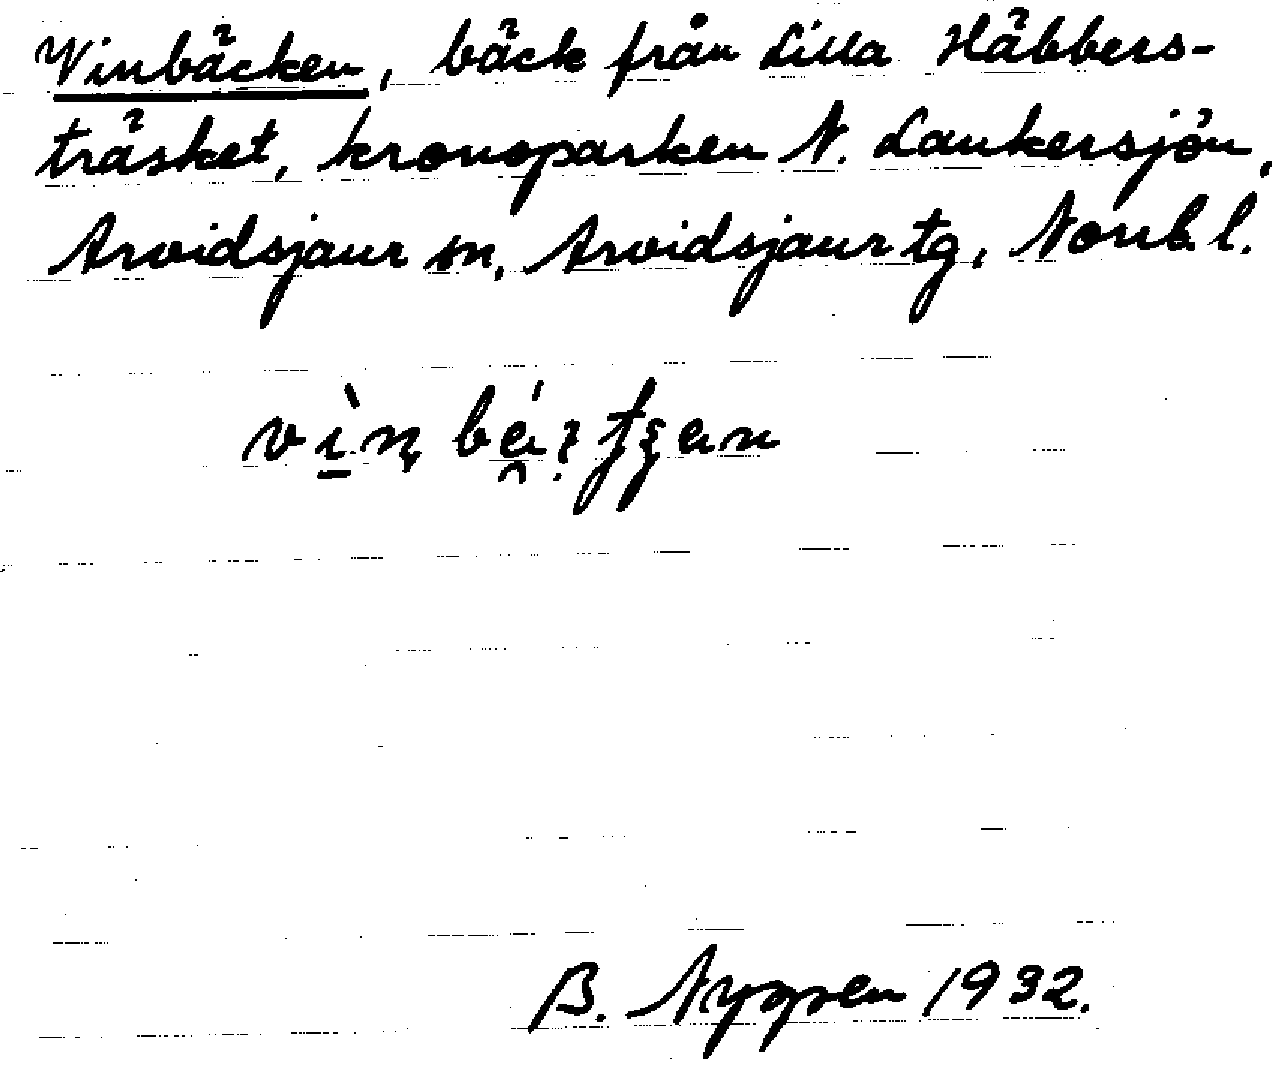 Vinbäcken, bäck från Lilla Häbbers-
träsket, kronoparken N. Laukersjön,
Arvidsjaur sn, Arvidsjaur tg, Norrb. l.
B. Nygren 1932.